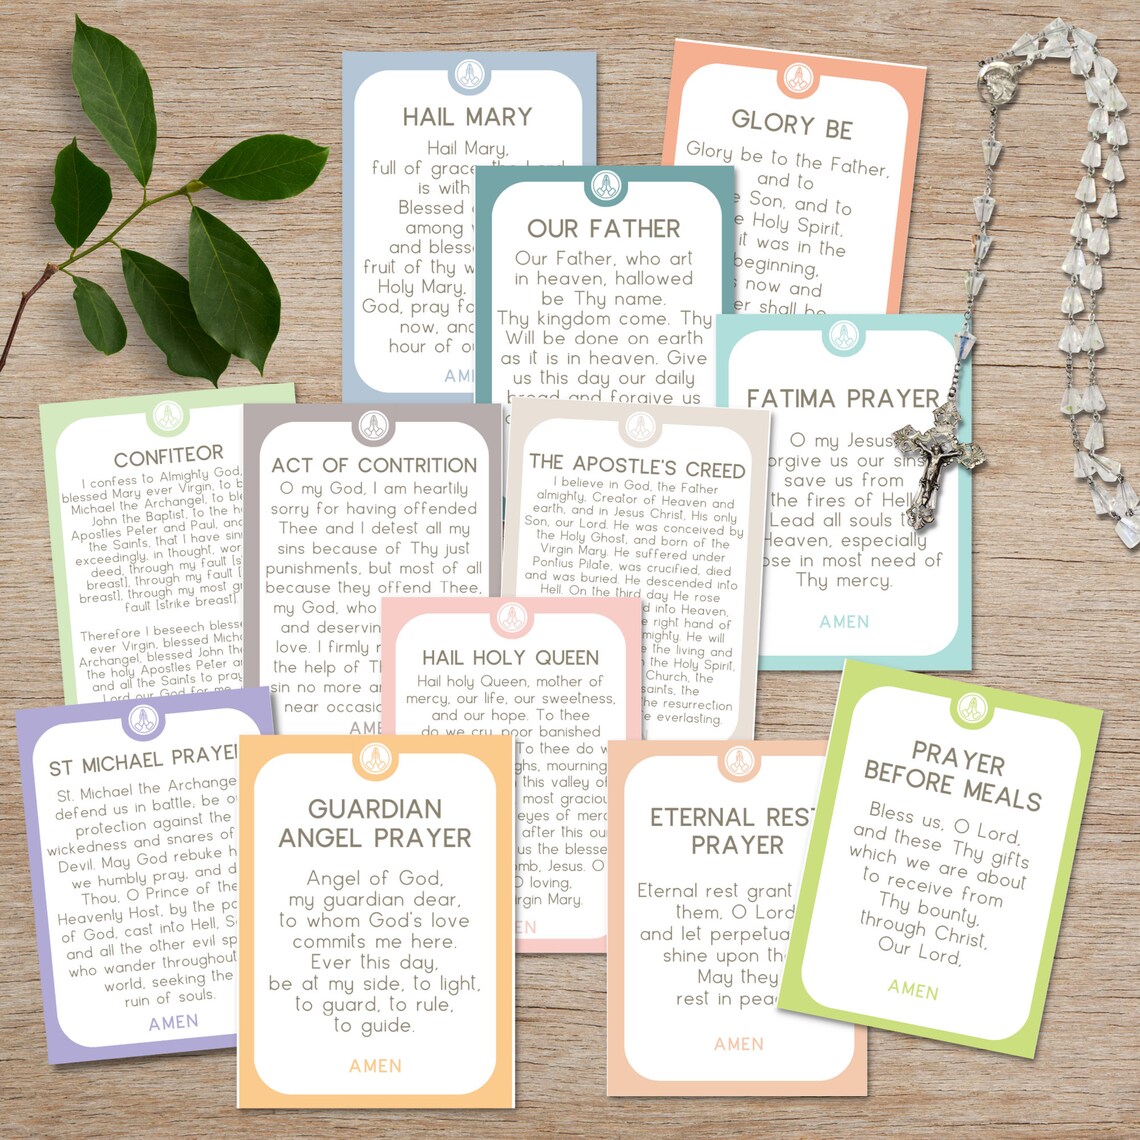 HAIL MARY
Hail Mary,
full of grace the Lord
is with
Blessed
among
and bless
fruit of thy w
Holy Mary,
God, pray fo
now, an
hour of o
AM
GLORY BE
Glory be to the Father,
and to
Son, and to
Holy Spirit.
it was in the
beginning,
now and
er shall be
OUR FATHER
Our Father, who art
in heaven, hallowed
be Thy name.
Thy kingdom come. Thy
Will be done on earth
as it is in heaven. Give
us this day our daily
bread and forgive us
FATIMA PRAYER
O my Jesus
orgive us our sins
save us from
the fires of Hell
Lead all souls to
Heaven, especially
ose in most need of
Thy mercy.
AMEN
CONFITEOR
I confess to Almighty God,
blessed Mary ever Virgin, to b
Michael the Archangel, to ble
John the Baptist, to the h
Apostles Peter and Paul, an
the Saints, that I have sin
exceedingly, in thought, wor
deed, through my fault [s
breast], through my fault [
breast], through my most gr
fault [strike breast].
Therefore I beseech bless
ever Virgin, blessed Mich
Archangel, blessed John the
the holy Apostles Peter a
and all the Saints to pray
Lord our God for me
ACT OF CONTRITION
O my God, I am heartily
sorry for having offended
Thee and I detest all my
sins because of Thy just
punishments, but most of all
because they offend Thee,
my God, who
and deservin
love. I firmly r
the help of T
sin no more an
near occasio
AME
THE APOSTLE'S CREED
I believe in God, the Father
almighty, Creator of Heaven and
earth, and in Jesus Christ, His only
Son, our Lord. He was conceived by
the Holy Ghost, and born of the
Virgin Mary. He suffered under
Pontius Pilate, was crucified, died
and was buried. He descended into
Hell. On the third day He rose
into Heaven,
right hand of
mighty. He will
the living and
the Holy Spirit,
Church, the
saints, the
the resurrection
e everlasting.
HAIL HOLY QUEEN
Hail holy Queen, mother of
mercy, our life, our sweetness,
and our hope. To thee
do we cry, poor banished
To thee do w
ghs, mourning
this valley of
most graciou
eyes of merc
after this ou
us the blesse
omb, Jesus. O
O loving,
irgin Mary.
EN
ST MICHAEL PRAYER
St. Michael the Archange
defend us in battle, be ou
protection against the
wickedness and snares of
Devil. May God rebuke h
we humbly pray, and d
Thou, O Prince of the
Heavenly Host, by the po
of God, cast into Hell, S
and all the other evil sp
who wander throughout
world, seeking the
ruin of souls.
AMEN
GUARDIAN
ANGEL PRAYER
Angel of God,
my guardian dear,
to whom God's love
commits me here.
Ever this day,
be at my side, to light,
to guard, to rule,
to guide.
AMEN
ETERNAL REST
PRAYER
Eternal rest grant
them, O Lord
and let perpetua
shine upon th
May they
rest in peac
AMEN
PRAYER
BEFORE MEALS
Bless us, O Lord,
and these Thy gifts
which we are about
to receive from
Thy bounty,
through Christ,
Our Lord,
AMEN